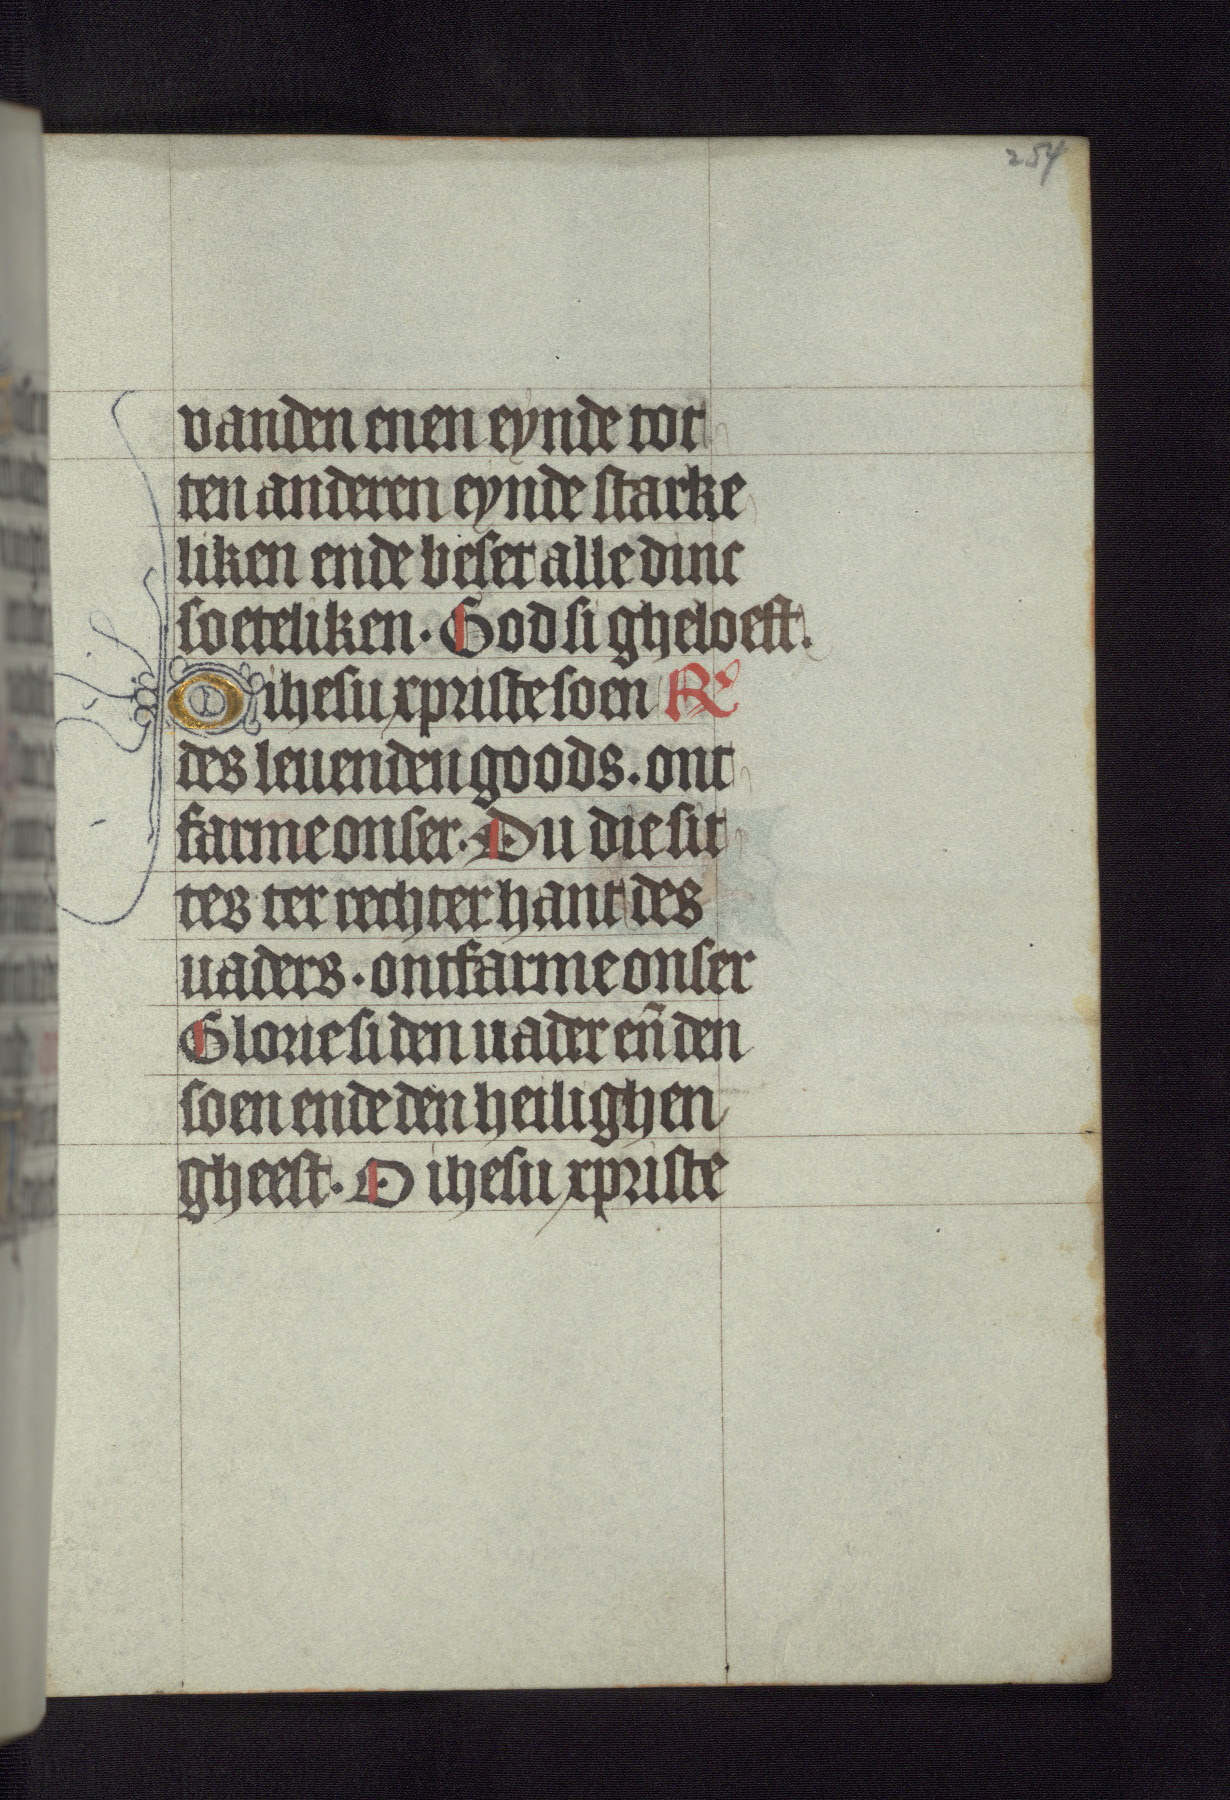 254
vanden enen eynde tot
ten anderen eynde starke
liken ende beset alle dinc
soeteliken. God si gheloeft.
O ihesu xpriste soen R
des leuenden goods. ont
farme onser. Du die sit
tes ter rechter hant des
uaders. ontfarme onser
Glorie si den uader en̄ den
soen ende den heilighen
gheest. O ihesu xpriste